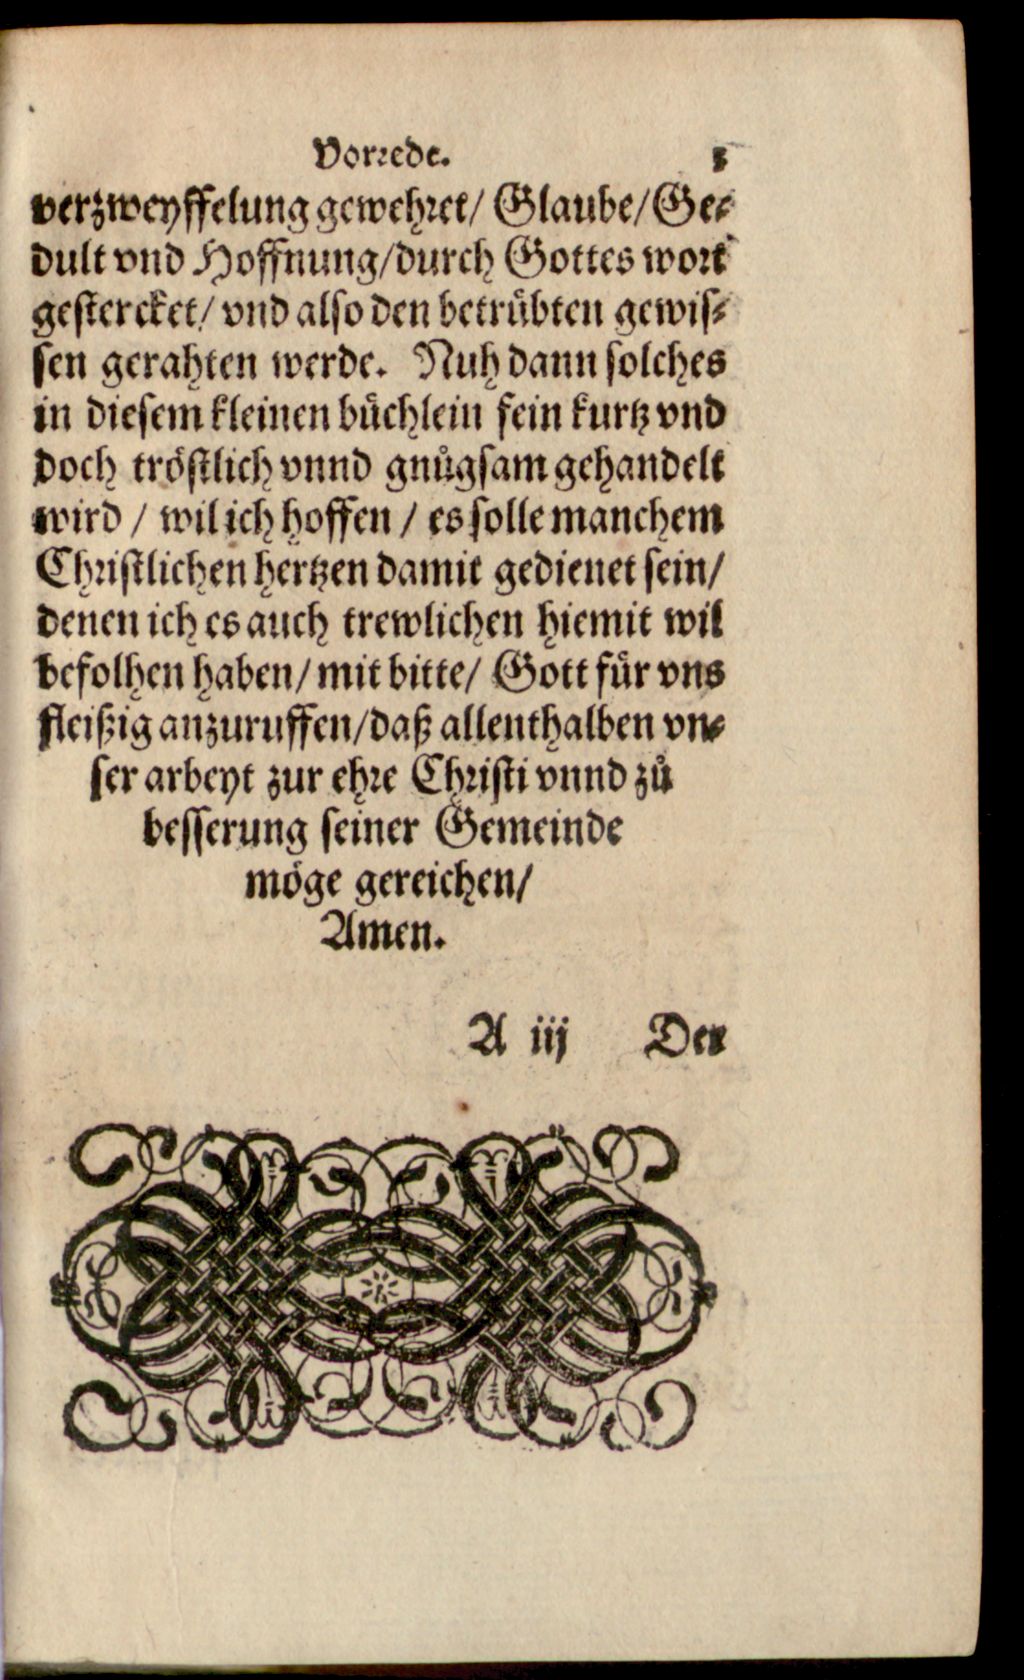 Vorrede. 3
verzweyffelung gewehret/ Glaube/ Ge⸗
dult vnd Hoffnung/ durch Gottes wort
gestercket/ vnd also den betrübten gewis⸗
sen gerahten werde. Nuh dann solches
in diesem kleinen büchlein fein kurtz vnd
doch tröstlich vnnd gnůgsam gehandelt
wird / wil ich hoffen / es solle manchem
Christlichen hertzen damit gedienet sein/
denen ich es auch trewlichen hiemit wil
befolhen haben/ mit bitte/ Gott für vns
fleißig anzuruffen/ daß allenthalben vn⸗
ser arbeyt zur ehre Christi vnnd zů
besserung seiner Gemeinde
möge gereichen/
Amen.
A iij Der